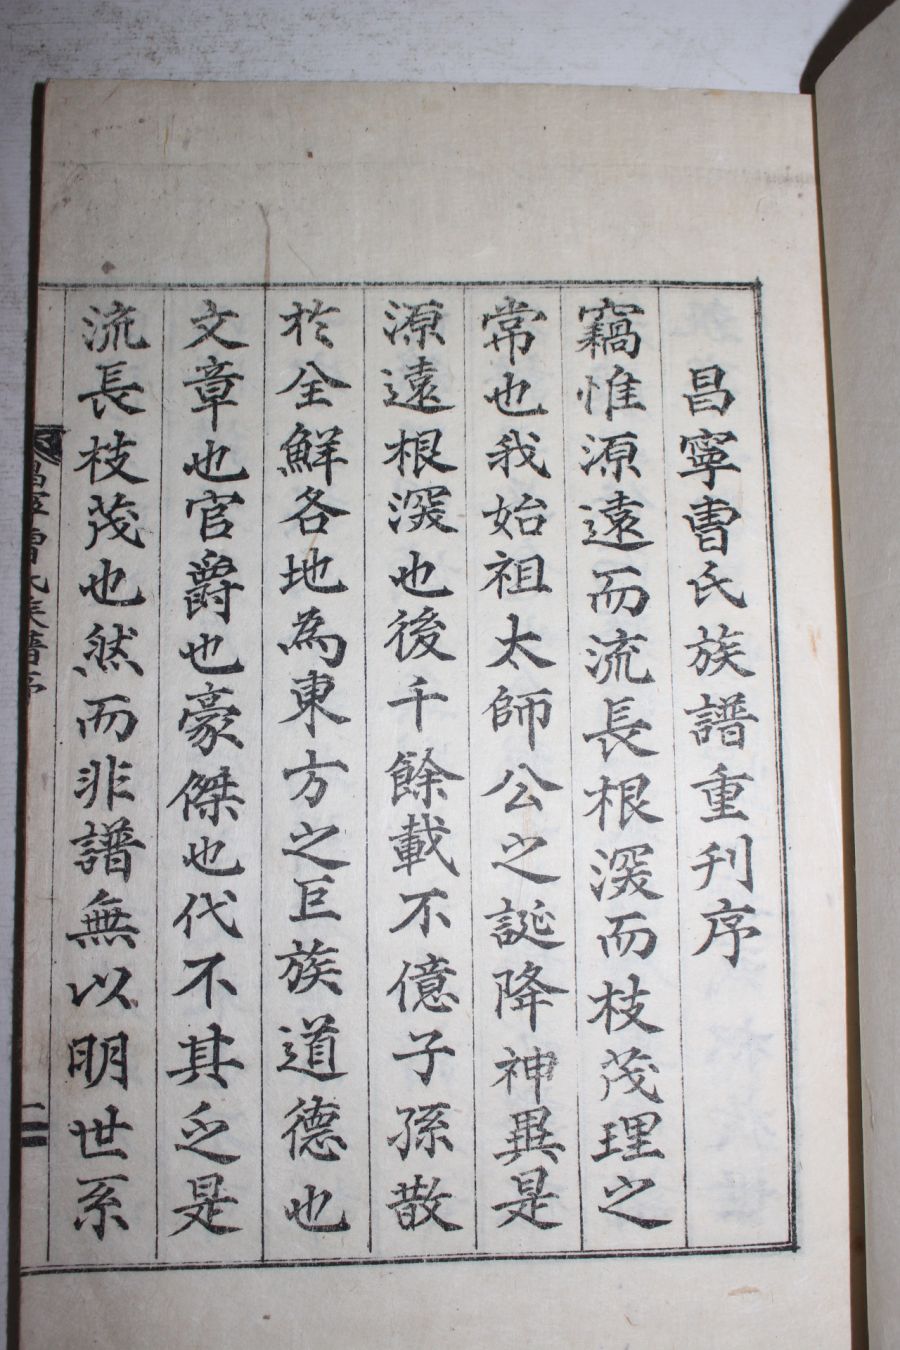 昌寧曺氏族譜重刊序
竊惟源遠而流長根深而枝茂理之
常也我始祖太師公之誕降神異是
源遠根深也後千餘載不億子孫散
於全鮮各地為東方之巨族道德也
文章也官爵也豪傑也代不其乏是
流長枝茂也然而非譜無以明世系
昌寧曺氏族譜序